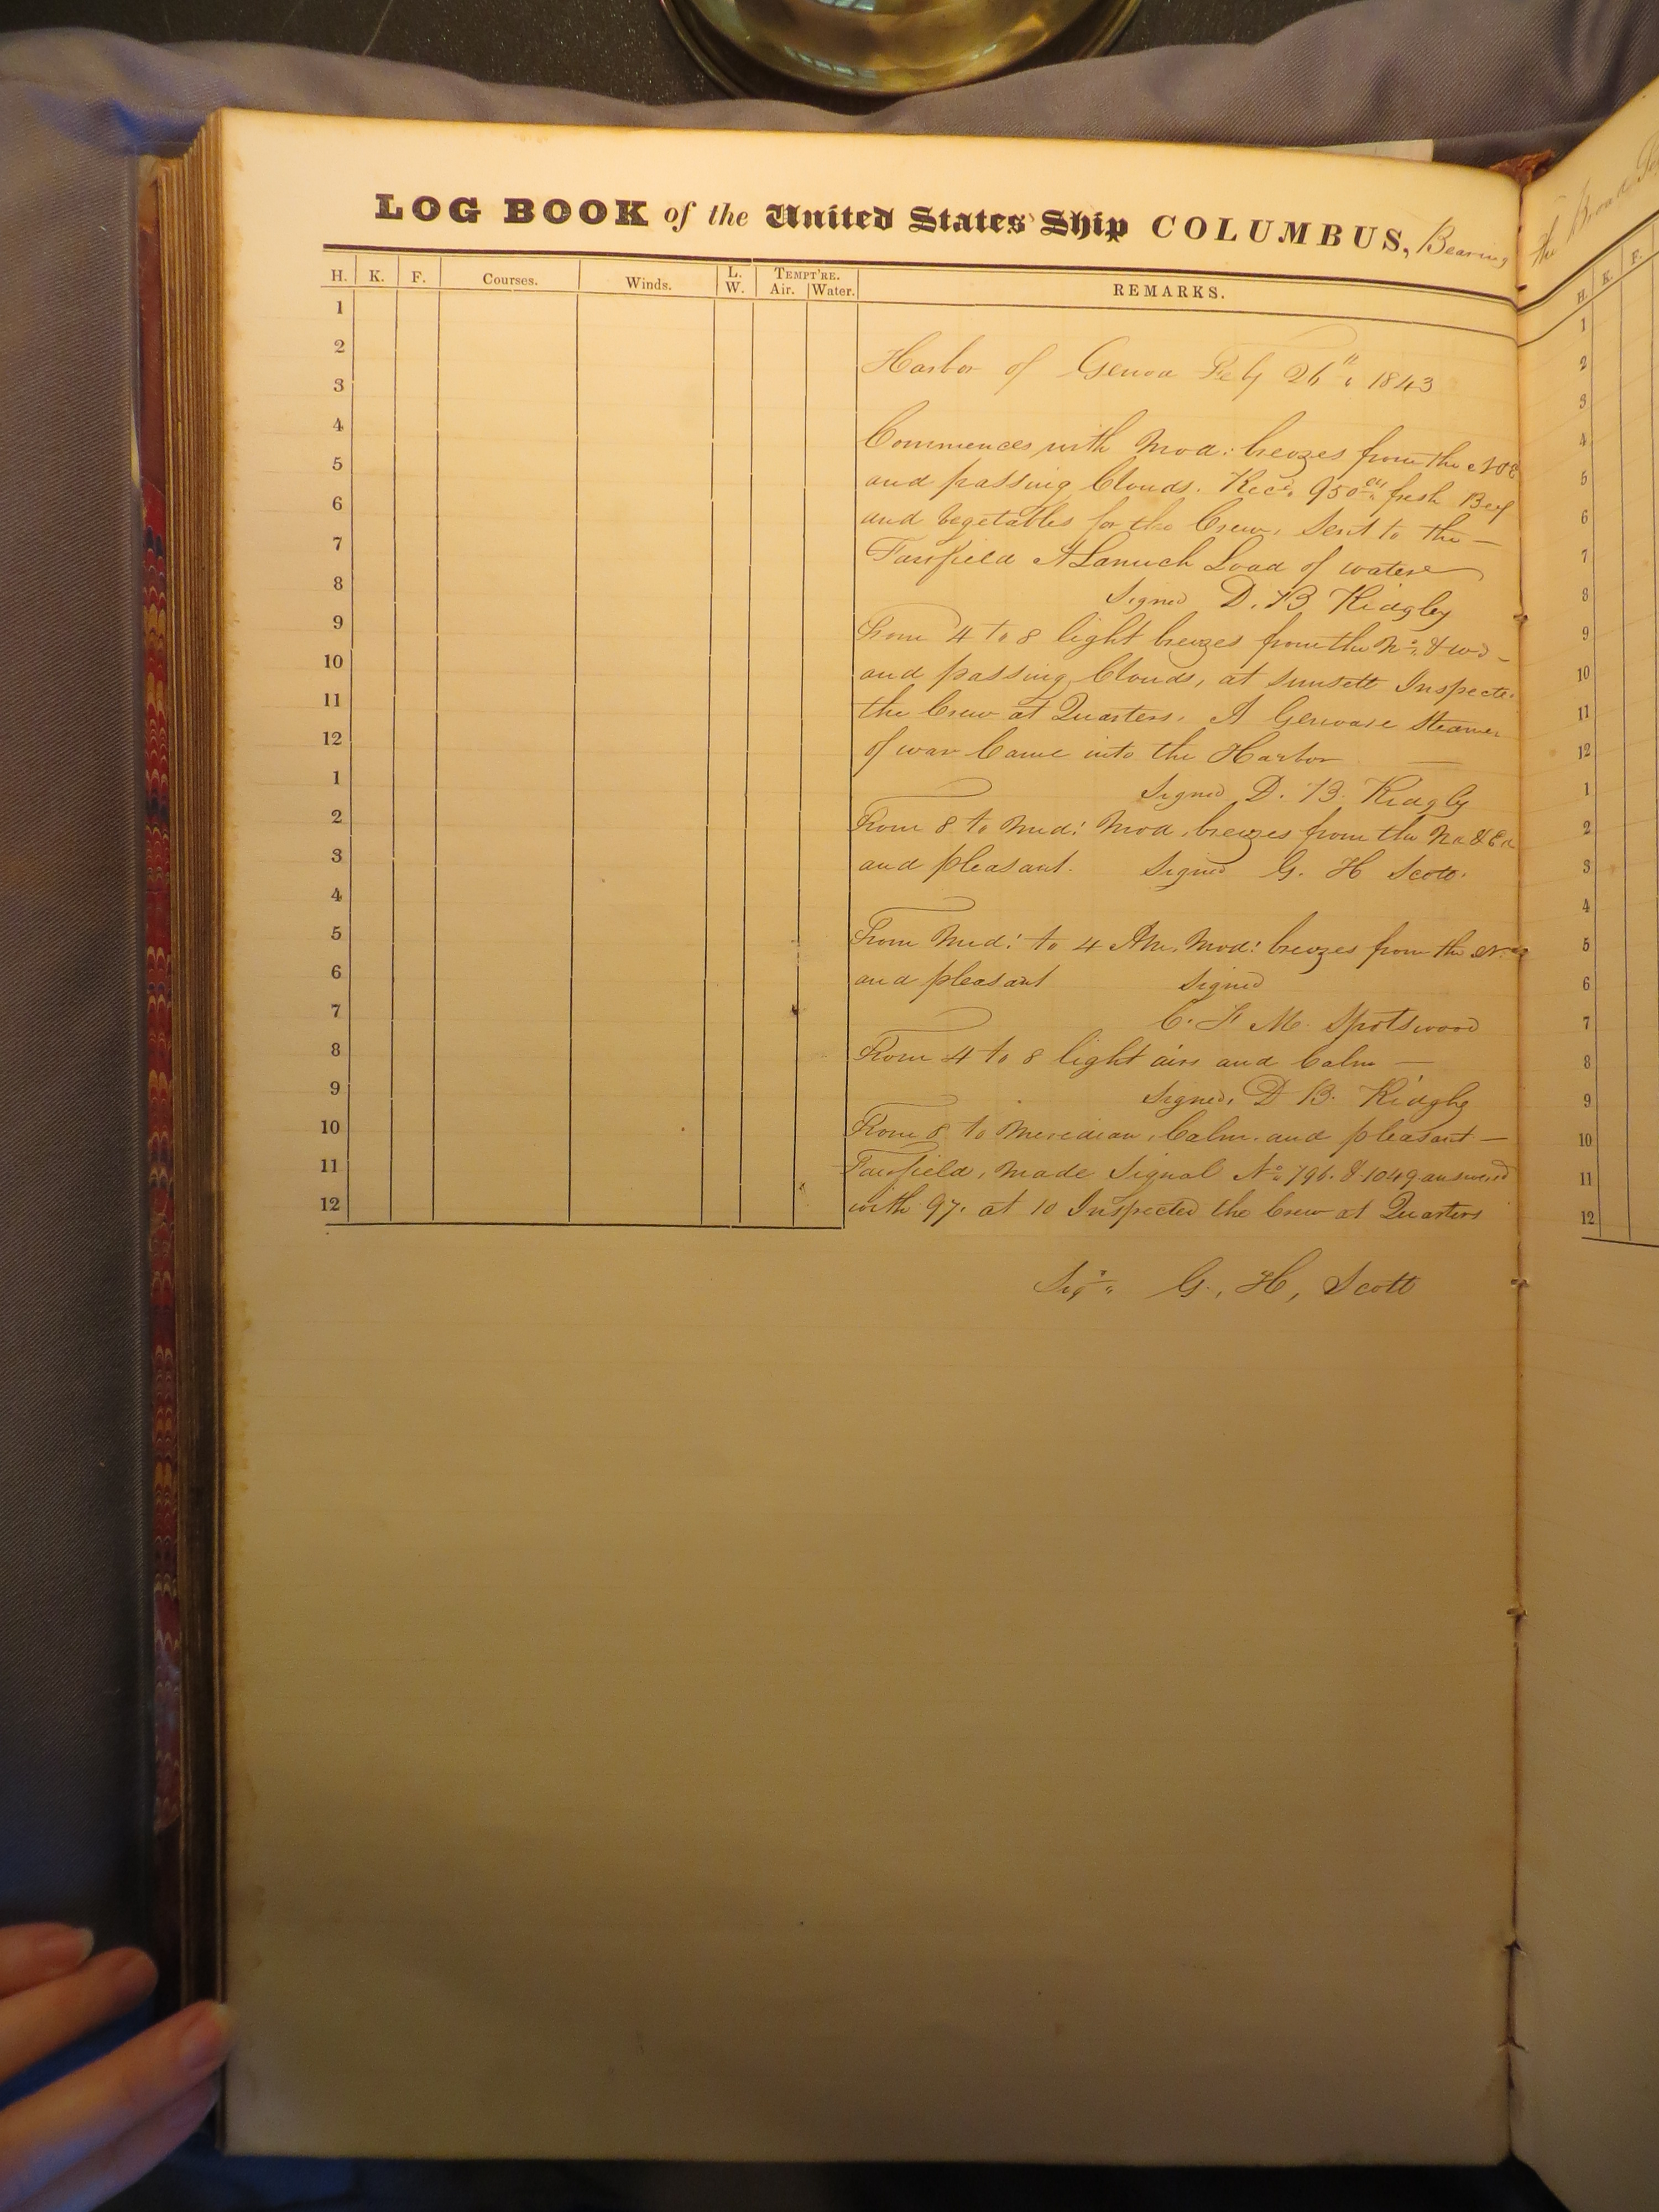 LOG BOOK of the United States Ship COLUMBUS, Bearing
H. K. F. Courses. Winds. L. W. TEMPT'RE. Air. Water. REMARKS.
1
2
3
4
5
6
7
8
9
10
11
12
1
2
3
4
5
6
7
8
9
10
11
12
Harbor of Genoa Feby 26th 1843
Commences with Mod: breezes from the
and passing Clouds. Recd. 950 fresh Beef
and vegetables for the Crew, Sent to the —
Fairfield A Lanuch Load of water
Signed D. B. Ridgley
From 4 to 8 light breezes from the No. & Wd —
and passing Clouds, at Sunsett Inspected
the Crew at Quarters. A Genoase Steamer
of war Came into the Harbor —
Signed D. B. Ridgly
From 8 to Mid: Mod. breezes from the No & Ed
and pleasant. Signed G. H Scott.
From Mid: to 4 Am. Mod: breezes from the
and pleasant Signed
C. F M. Spotswood
From 4 to 8 light airs and Calm —
Signed, D B. Ridgly
From 8 to Meredian, Calm. and pleasant —
Fairfield, made Signal No. 796. & 1049 answered
with 97. at 10 Inspected the Crew at Quarters
Sigd. G., H, Scott
the Broad
H. K. F.
1
2
3
4
5
6
7
8
9
10
11
12
1
2
3
4
5
6
7
8
9
10
11
12